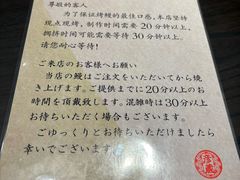 尊敬的客人
为了保证烤鳗的最佳口感,本店坚持
现点现烤,制作时间需要20分钟以上,
拥挤时间可能需要等待30分钟以上。
请您耐心等待!
ご来店のお客様へお願い
当店の鰻はご注文をいただいてから焼
き上げます。ご提供までに20分以上のお
時間を頂戴致します。混雑時は30分以上
お待ちいただく場合もございます。
ごゆっくりとお待ちいただけましたら
幸いでございます。